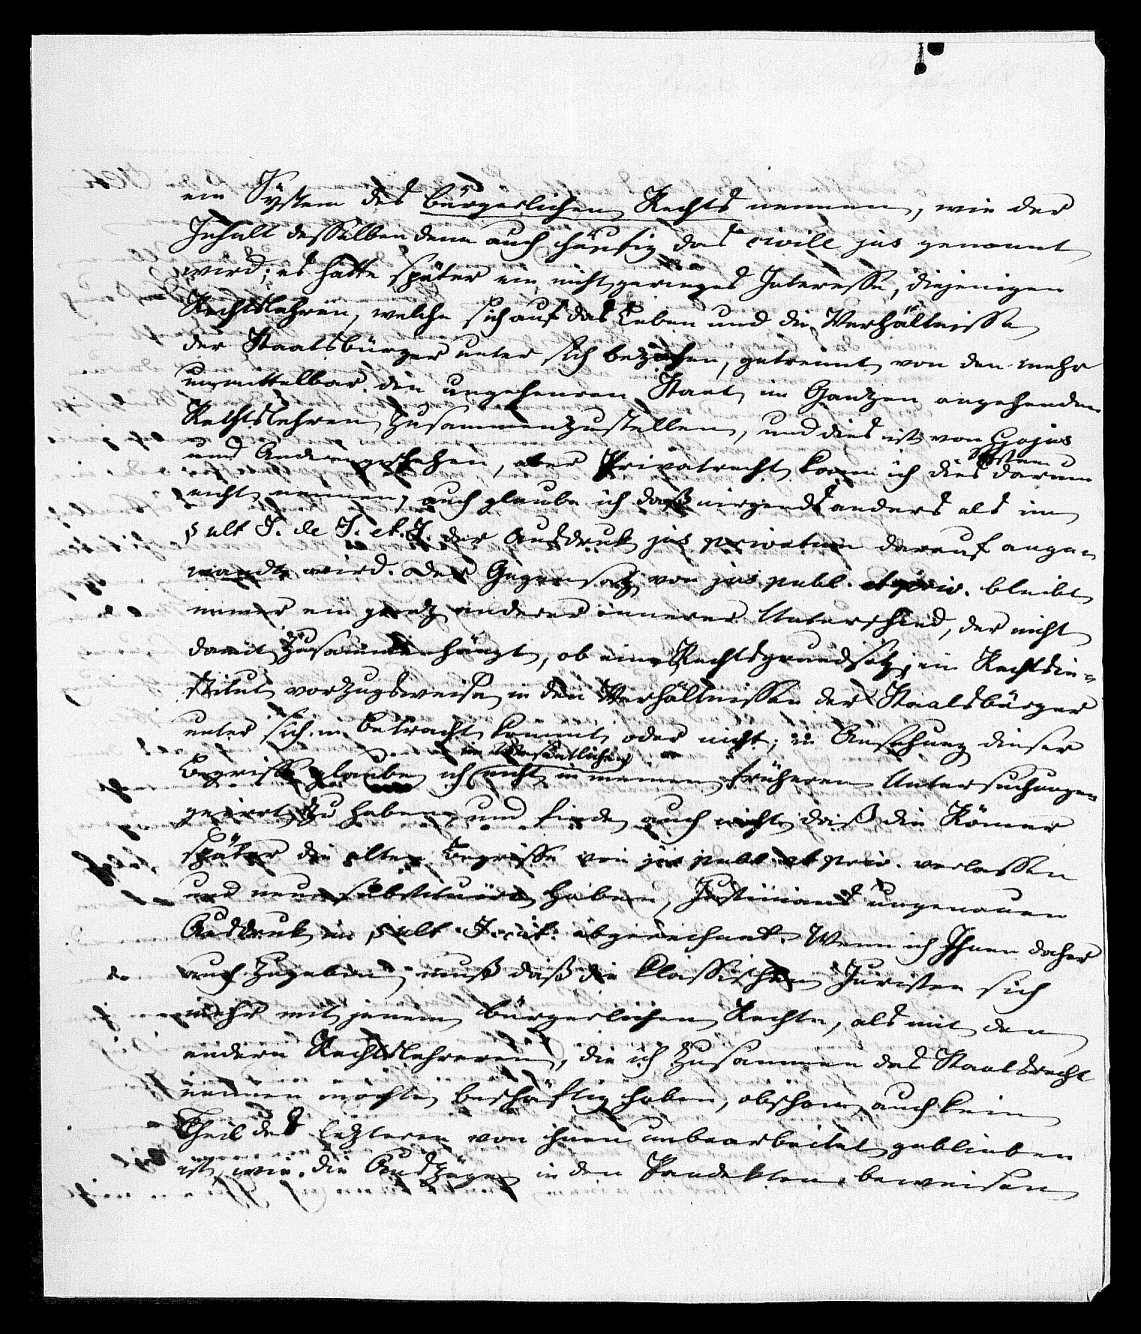 ein System des bürgerlichen Rechts nennen, wie der
Inhalt desselben denn auch häufig das civile jus genannt
wird; es hatte später ein nicht geringes Interesse, diejenigen
Rechtslehren, welche sich auf das Leben und die Verhältnisse
der Staatsbürger unter sich beziehen, getrennt von den mehr
unmittelbar den ungeheuren Staat im Ganzen angehenden
Rechtslehren zusammenzustellen, und dies ist von Gajus
und Andern geschehen, aber Privatrecht kann ich dies darum
nicht nennen, auch glaube ich daß nirgends anders als im
§ ult J. de J. et J. der Ausdruck jus privatum darauf ange-
wandt wird. Der Gegensatz von jus publ. et priv. bleibt
immer ein ganz anderer innerer Unterschied, der nicht
damit zusammenhängt, ob eine Rechtsgrundsatz, ein Rechtsin-
stitut vorzugsweise in den Verhältnissen der Staatsbürger
unter sich in Betracht kommt oder nicht; in Ansehung dieser
Begriffe glaube ich im Wesentlichen nicht in meinen früheren Untersuchungen
geirrt zu haben, und finde auch nicht daß die Römer
später die alten Begriffe von jus publ. et priv. verlassen
und neue substituirt haben, Justinians ungenauen
Ausdruck in § ult J. cit. abgerechnet. Wenn ich Ihnen daher
auch zugeben muß daß die klassischen Juristen sich
mehr mit jenem bürgerlichen Rechte, als mit den
andern Rechtslehren, die ich zusammen das Staatsrecht
nennen möchte, beschäftig haben, obschon auch kein
Theil des letzteren von ihnen unbearbeitet geblieben
ist, wie die Auszüge in den Pandekten beweisen